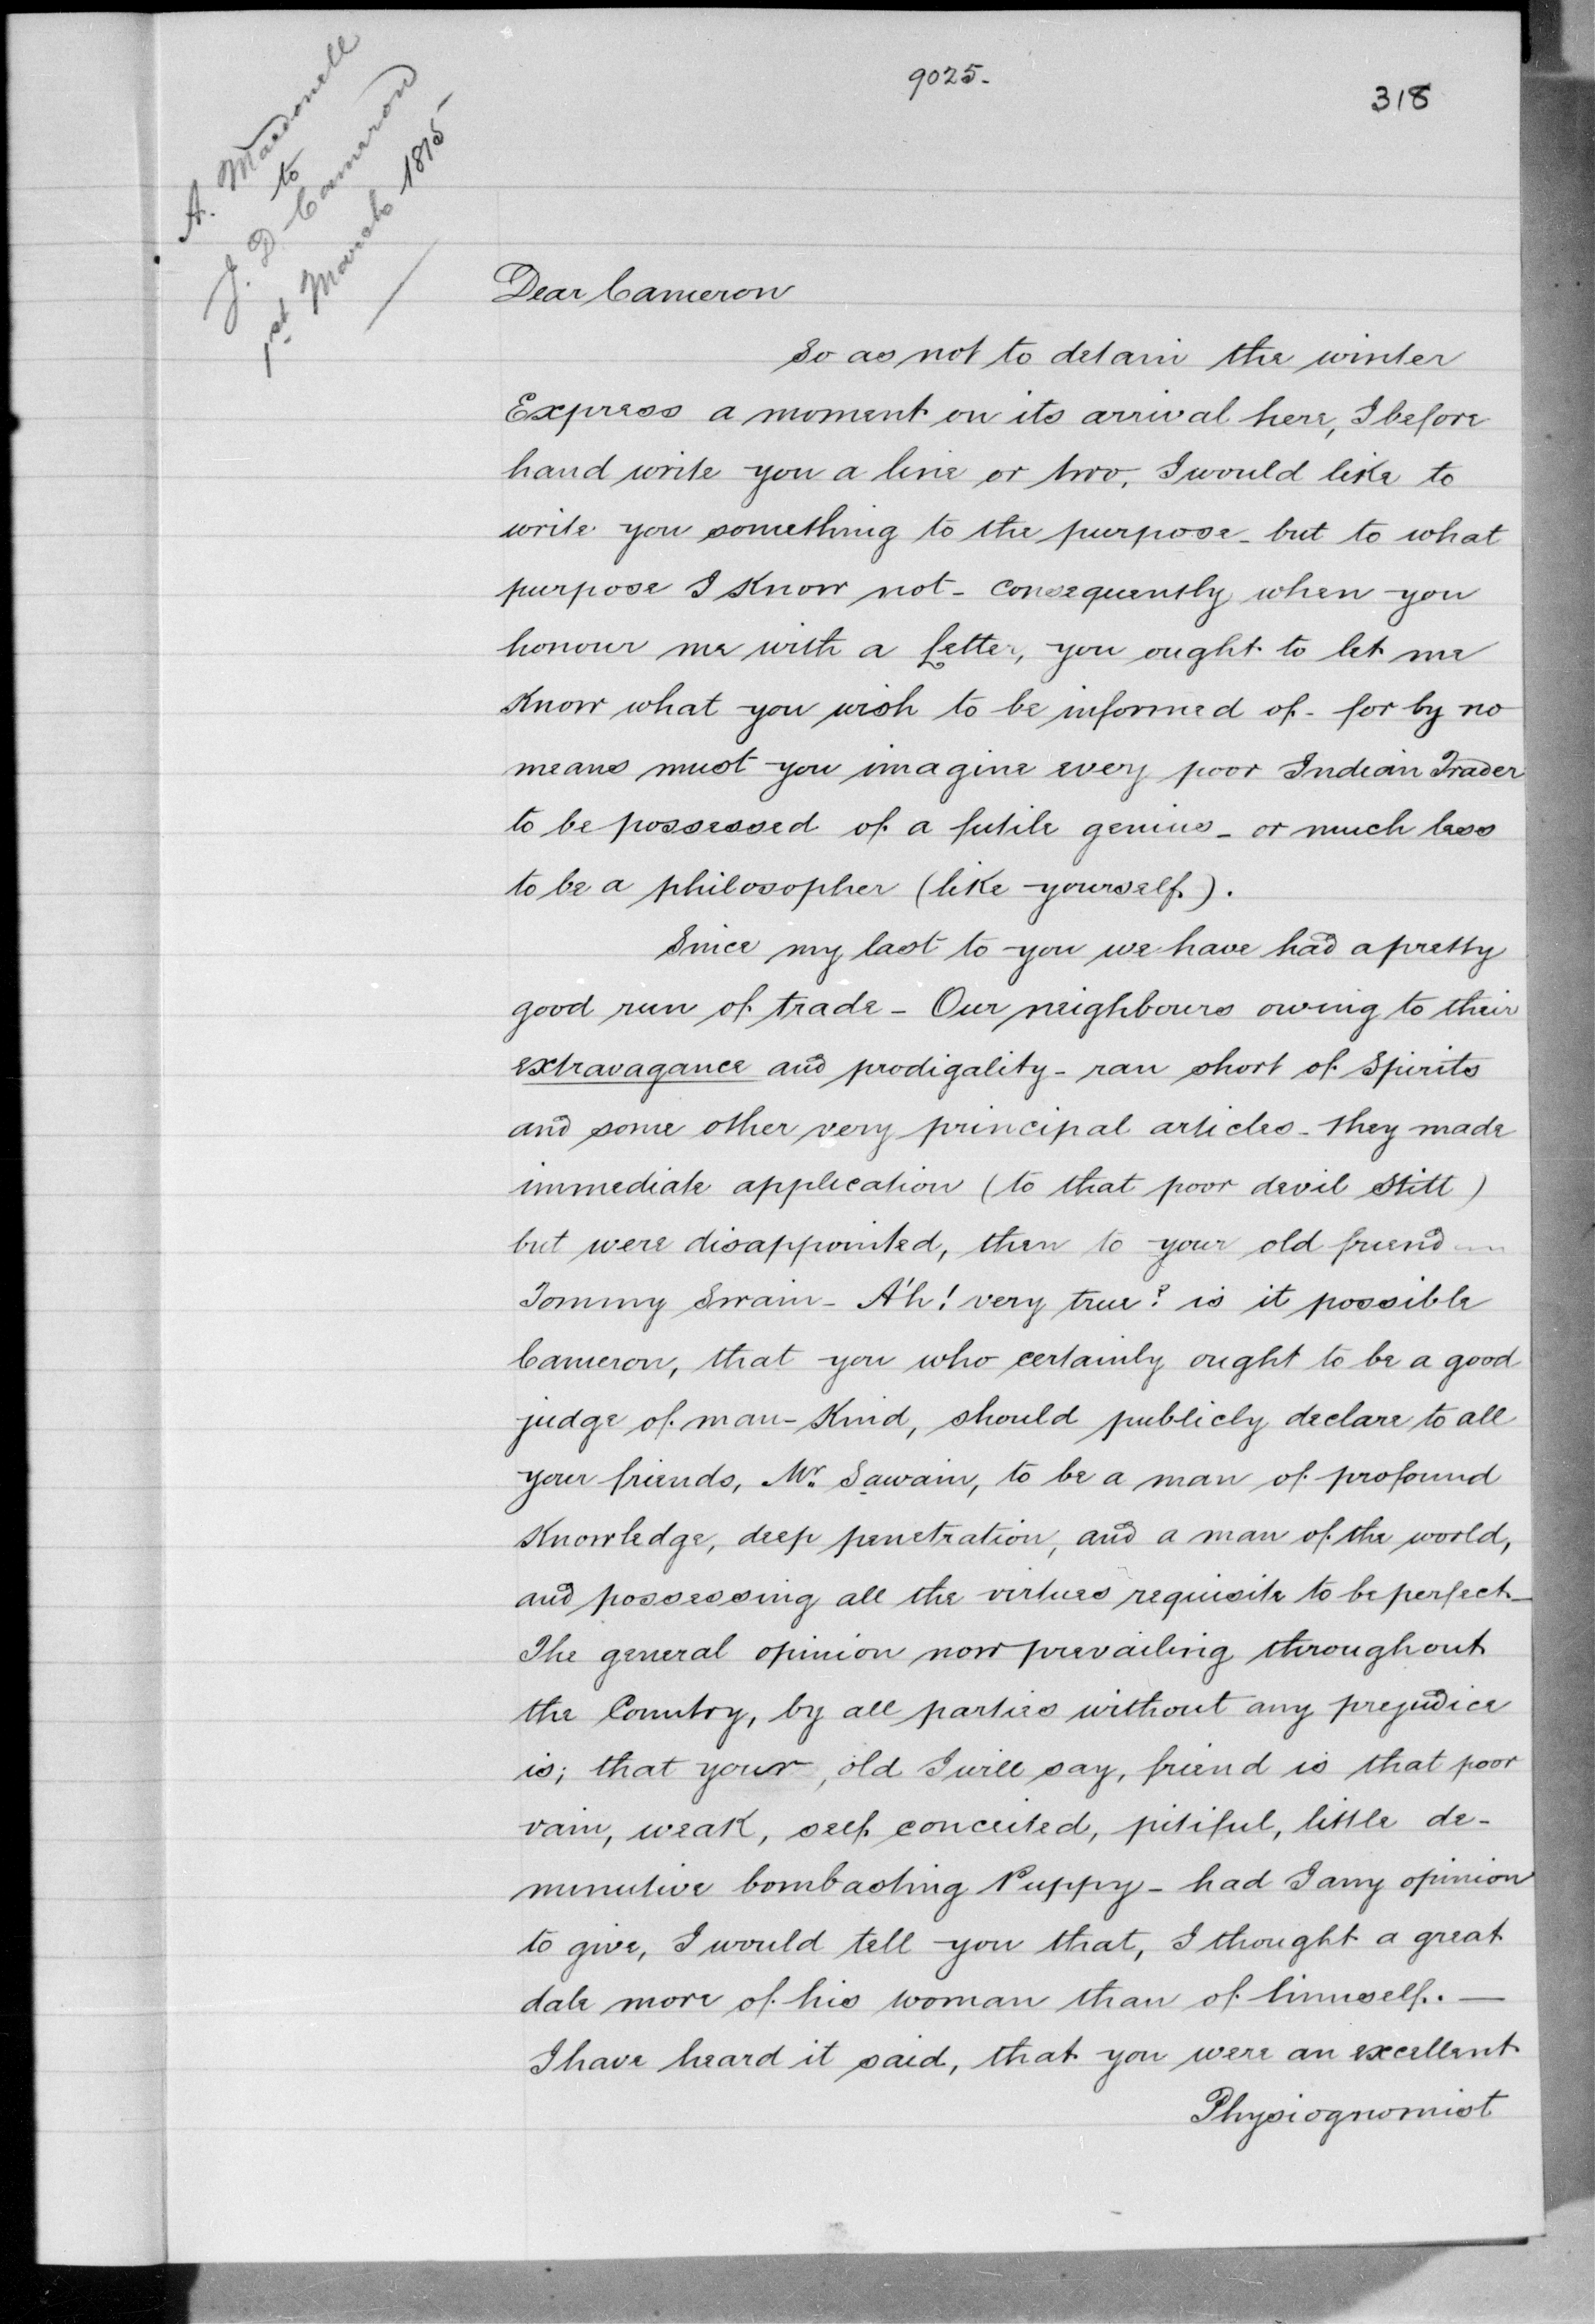 9025-
318
A. Macdonell
to
J. D. Cameron
1st March 1815
Dear Cameron
So as not to detain the winter
Express a moment on its arrival here, I before
hand write you a line or two, I would like to
write you something to the purpose - but to what
purpose I know not - consequently when you
honour me with a letter, you ought to let me
know what you wish to be informed of - for by no
means must you imagine every poor Indian Trader
to be possessed of a futile genius - or much less
to be a philosopher (like yourself).
Since my last to you we have had a pretty
good run of trade - Our neighbours owing to their
extravagance and prodigality - ran short of Spirits
and some other very principal articles - they made
immediate application (to that poor devil Stitt)
but were disappointed, then to your old friend
Tommy Swain - A'h! very true? is it possible
Cameron, that you who certainly ought to be a good
judge of man-kind, should publicly declare to all
your friends, Mr. Sawain, to be a man of profound
knowledge, deep penetration, and a man of the world,
and possessing all the virtues requisite to be perfect -
The general opinion now prevailing throughout
the Country, by all parties without any prejudice
is; that your, old I will say, friend is that poor
vain, weak, self conceited, pitiful, little de-
minutive bombasting Puppy - had I any opinion
to give, I would tell you that, I thought a great
dale more of his woman than of himself. -
I have heard it said, that you were an excellent
Physiognomist